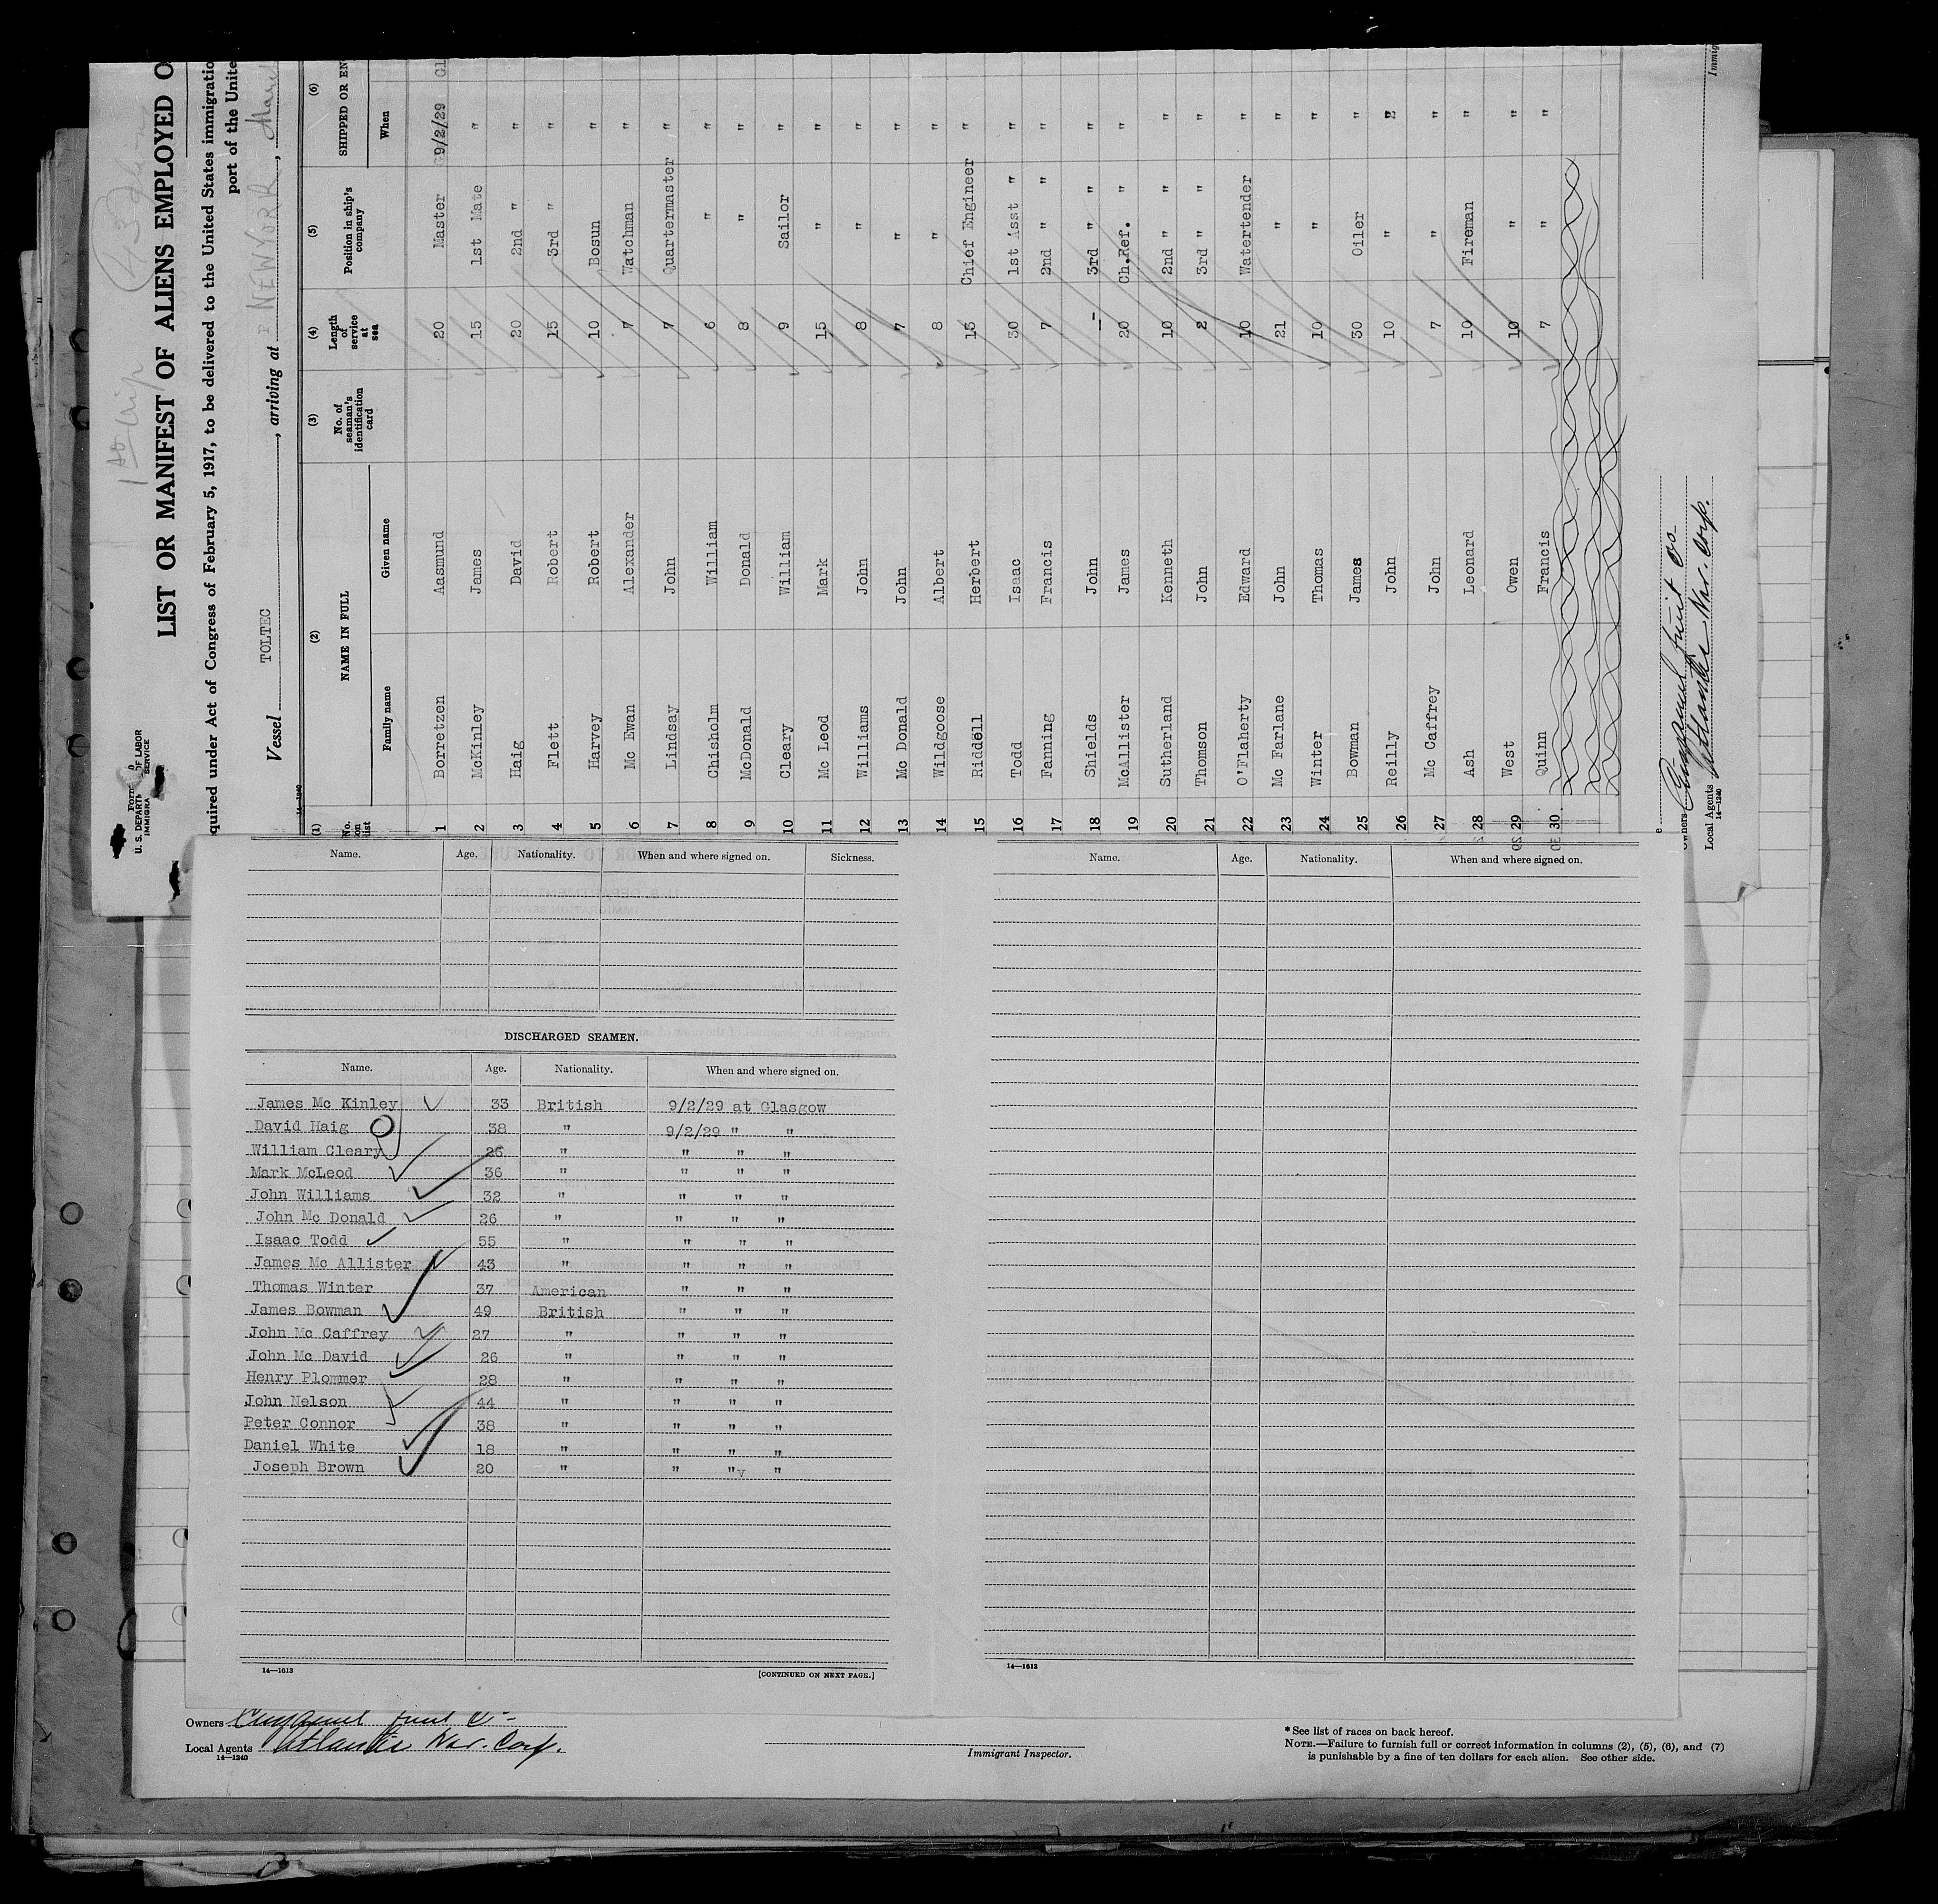 1st Trip
LIST OR MANIFEST OF ALIENS EMPLOYED O
quired under Act of Congress of February 5, 1917, to be delivered to the United States immigratio
port of the Unite
Form
U. S. DEPARTM OF LABOR
IMMIGRA SERVICE
Vessel TOLTEC , arriving at NEW YORK ,
14—1240
(1) (2) (3) (4) (5) (6)
No. on list NAME IN FULL No. of seaman's identification card Length of service at sea Position in ship's company SHIPPED OR EN
Family name Given name When
1 Borretzen Aasmund 20 Master 9/2/29 Gl
2 McKinley James 15 1st Mate "
3 Haig David 20 2nd " "
4 Flett Robert 15 3rd " "
5 Harvey Robert 10 Bosun "
6 Mc Ewan Alexander 7 Watchman "
7 Lindsay John 7 Quartermaster "
8 Chisholm William 6 " "
9 McDonald Donald 8 " "
10 Cleary William 9 Sailor "
11 Mc Leod Mark 15 " "
12 Williams John 8 " "
13 Mc Donald John 7 " "
14 Wildgoose Albert 8 " "
15 Riddell Herbert 15 Chief Engineer "
16 Todd Isaac 30 1st Asst " "
17 Fanning Francis 7 2nd " " "
18 Shields John - 3rd " " "
19 McAllister James 20 Ch.Ref. " "
20 Sutherland Kenneth 10 2nd " " "
21 Thomson John 2 3rd " " "
22 O'Flaherty Edward 10 Watertender "
23 Mc Farlane John 21 " "
24 Winter Thomas 10 " "
25 Bowman James 30 Oiler "
26 Reilly John 10 " "
27 Mc Caffrey John 7 " "
28 Ash Leonard 10 Fireman "
29 West Owen 10 " "
30 Quinn Francis 7 " "
Owners Cuyamel Fruit Co
Local Agents Atlantic Nav. Corp.
14—1240
Immig
Name. Age. Nationality. When and where signed on. Sickness.
DISCHARGED SEAMEN.
Name. Age. Nationality. When and where signed on.
James Mc Kinley 33 British 9/2/29 at Glasgow
David Haig 38 " 9/2/29 " "
William Cleary 26 " " " "
Mark McLeod 36 " " " "
John Williams 32 " " " "
John Mc Donald 26 " " " "
Isaac Todd 55 " " " "
James Mc Allister 43 " " " "
Thomas Winter 37 American " " "
James Bowman 49 British " " "
John Mc Caffrey 27 " " " "
John Mc David 26 " " " "
Henry Plommer 28 " " " "
John Nelson 44 " " " "
Peter Connor 38 " " " "
Daniel White 18 " " " "
Joseph Brown 20 " " "v "
14—1613 [CONTINUED ON NEXT PAGE.]
Name. Age. Nationality. When and where signed on.
14—1613
Owners Cuyamel Fruit Co
Local Agents Atlantic Nav. Corp.
14—1240
Immigrant Inspector.
* See list of races on back hereof.
NOTE.—Failure to furnish full or correct information in columns (2), (5), (6), and (7)
is punishable by a fine of ten dollars for each alien. See other side.